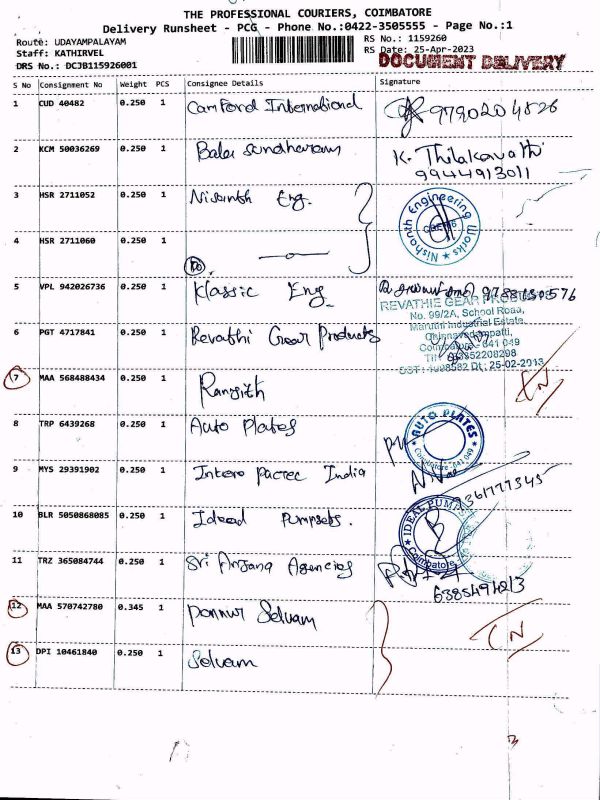 THE PROFESSIONAL COURIERS, COIMBATORE
Delivery Runsheet - PCG - Phone No.:0422-3505555 - Page No.:1
Route: UDAYAMPALAYAM
RS No.: 1159260
Staff: KATHIRVEL
RS Date: 25-Apr-2023
DRS No.: DCJB115926001
DOCUMENT DELIVERY
S No Consignment No Weight PCS Consignee Details Signature
1 CUD 40482 0.250 1 Camford International 9790204826
2 KCM 50036269 0.250 1 Bala sundharam K. Thilakavathi
9944913011
3 HSR 2711052 0.250 1 Nishanth Eng. Nishanth Engineering Works
4 HSR 2711060 0.250 1
5 VPL 942026736 0.250 1 Klassic Eng
REVATHIE GEAR PRODUCTS
No. 99/2A, School Road,
Maruthi Industrial Estate,
Chinnavedampatti,
Coimbatore - 641 049
6 PGT 4717841 0.250 1 Revathi Gear Products
Dt: 25-02-2013
7 MAA 568488434 0.250 1 Ranjith IN
8 TRP 6439268 0.250 1 Auto Plates AUTO PLATES
Coimbatore-641 049
9 MYS 29391902 0.250 1 Intero Pactec India
9361777345
10 BLR 5050868085 0.250 1 Ideal Pumpsets. IDEAL PUMP
Coimbatore
11 TRZ 365084744 0.250 1 Sri Anjana Agencies
12 MAA 570742780 0.345 1 Ponnur Selvam IN
13 DPI 10461840 0.250 1 Selvam